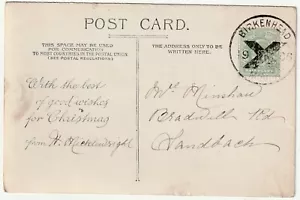 POST CARD.
THIS SPACE MAY BE USED
FOR COMMUNICATION
TO PLACES IN THE POSTAL UNION.
(SEE POSTAL REGULATIONS)
THE ADDRESS ONLY TO BE
WRITTEN HERE.
BIRKENHEAD
With the best
of good wishes
for Christmas
from
Minshall
Bradwell Rd
Sandbach